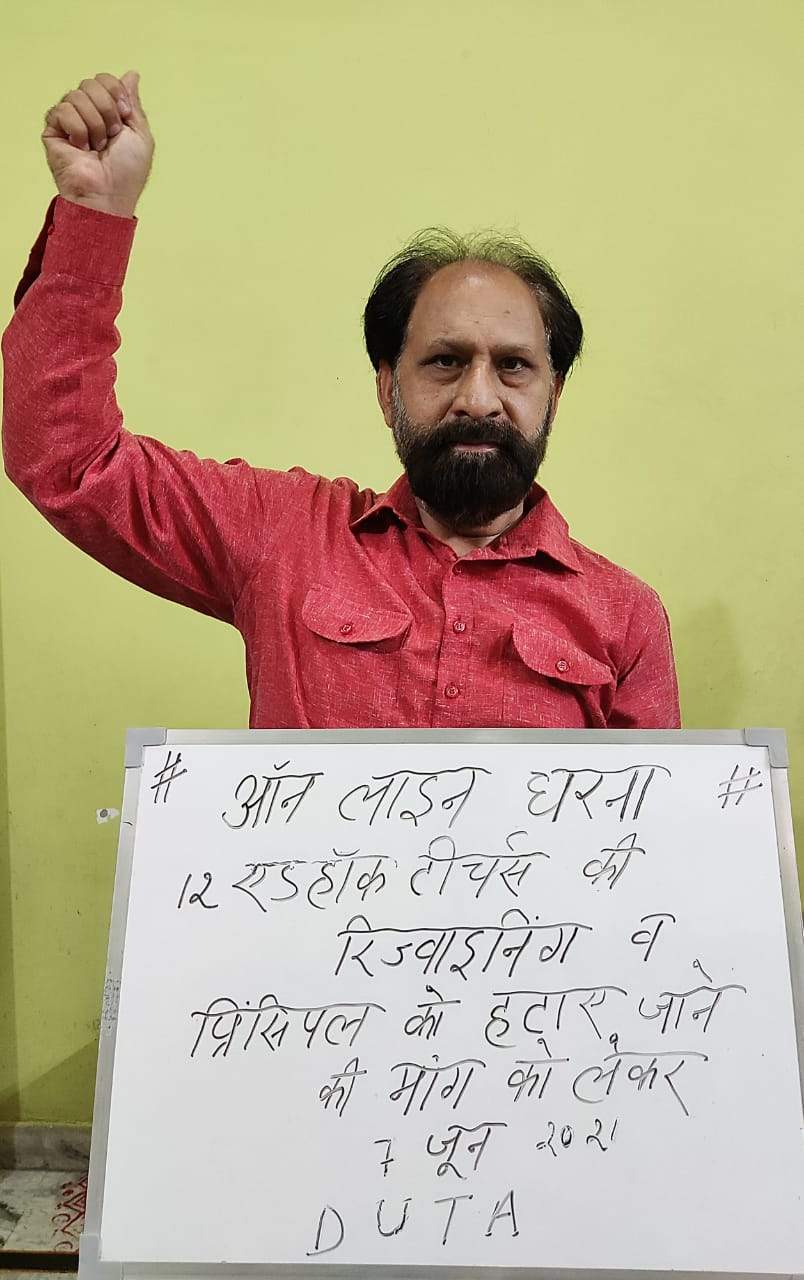 # ऑन लाइन धरना #
12 एडहॉक टीचर्स की
रिज्वाइनिंग व
प्रिंसिपल को हटाए जाने
की मांग को लेकर
7 जून 2021
DUTA